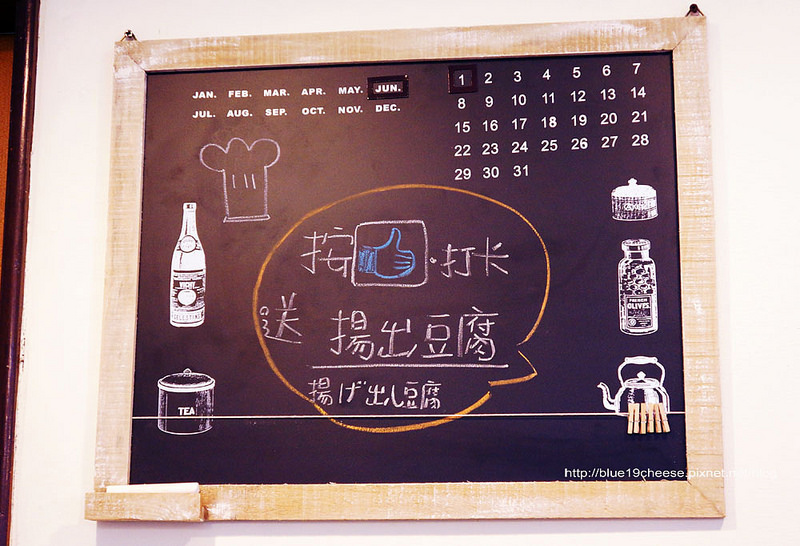 JAN. FEB. MAR. APR. MAY. JUN.
JUL. AUG. SEP. OCT. NOV. DEC.
1 2 3 4 5 6 7
8 9 10 11 12 13 14
15 16 17 18 19 20 21
22 23 24 25 26 27 28
29 30 31
按 打卡
送
揚出豆腐
揚げ出し豆腐
TEA
OLIVES
http://blue19cheese.pixnet